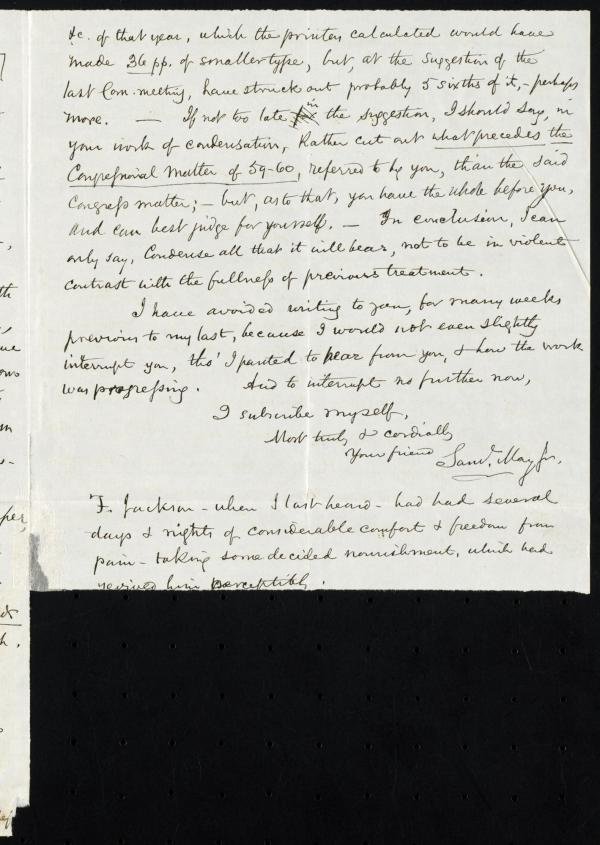 &c. of that year, which the printers calculated would have
made 36 pp. of smaller type, but, at the suggestion of the
last Com. meeting, have struck out probably 5 sixths of it, - perhaps
more. — If not too late in the suggestion, I should say, in
your work of condensation, Rather cut out what precedes the
Congressional Matter of 59-60, referred to by you, than the said
Congress matter; - but, as to that, you have the whole before you,
and can best judge for yourself. — In conclusion, I can
only say, Condense all that it will bear, not to be in violent
contrast with the fullness of previous treatment.
I have avoided writing to you, for many weeks
previous to my last, because I would not even slightly
interrupt you, tho' I panted to hear from you, & how the work
was progressing. And to interrupt no further now,
I subscribe myself,
Most truly & cordially
Your friend Saml. May Jr.
F. Jackson - when I last heard - had had several
days & nights of considerable comfort & freedom from
pain - taking some decided nourishment, which had
revived him perceptibly.